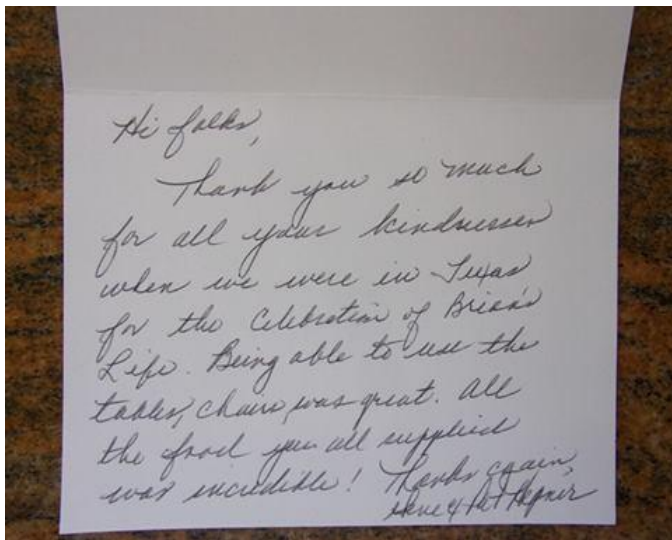 Hi folks,
Thank you so much
for all your kindnesses
when we were in Texas
for the Celebration of Brian's
Life. Being able to use the
tables, chairs was great. All
the food you all supplied
was incredible! Thanks again,
& Pat Hepner